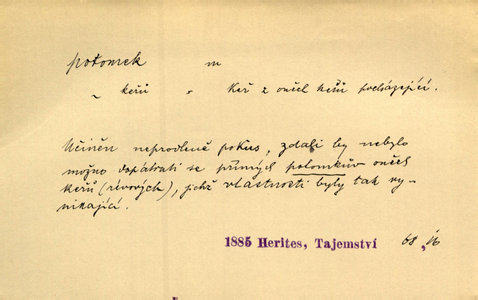 potomek m
~ keřů „ Keř z oněch keřů pocházející.
Učiněn neprodleně pokus, zdali by nebylo
možno dopátrati se přímých potomkův oněch
keřů (révových), jichž vlastnosti byly tak vy-
nikající.
1885 Herites, Tajemství 68, 86